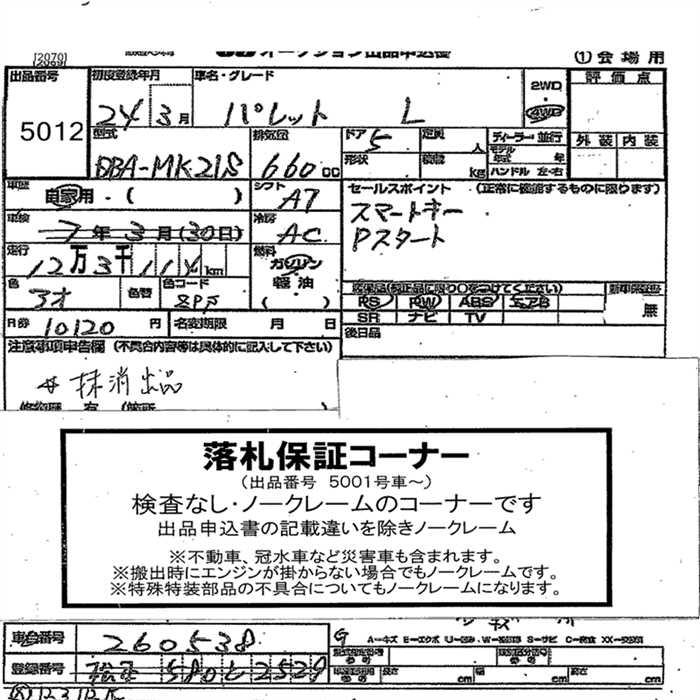 [2070]
オークション出品申込書 ① 会場用
出品番号 初度登録年月 車名・グレード 2WD 4WD 評価点
5012 24 3月 パレット L
外装 内装
型式 排気量 ドア 5 定員 人 ディーラー・並行
DBA-MK21S 660cc 形状 積載 kg モデル年式 年 ハンドル 左・右
車歴 自家用・( ) シフト AT セールスポイント (正常に機能するものに限ります)
車検 7年3月(30日) 冷房 AC スマートキー
Pスタート
走行 12万3千114km 燃料 ガソリン 軽油 ( )
色 アオ 色替 色コード ZPF
純正装備品(純正品に限り○をつけてください) 新車保証書
PS PW ABS エアB 無
SR ナビ TV
R券 10120円 名変期限 月 日 後日品
注意事項申告欄 (不具合内容等は具体的に記入して下さい)
抹消出品
落札保証コーナー
(出品番号 5001号車~)
検査なし・ノークレームのコーナーです
出品申込書の記載違いを除きノークレーム
※不動車、冠水車など災害車も含まれます。
※搬出時にエンジンが掛からない場合でもノークレームです。
※特殊特装部品の不具合についてもノークレームになります。
車台番号 260538
A-キズ E-エクボ U-凹み W-補修跡 S-サビ C-腐食 XX-交換済
登録番号 580 2529
型式指定番号 類別区分番号
長さ cm 幅 cm 高さ cm